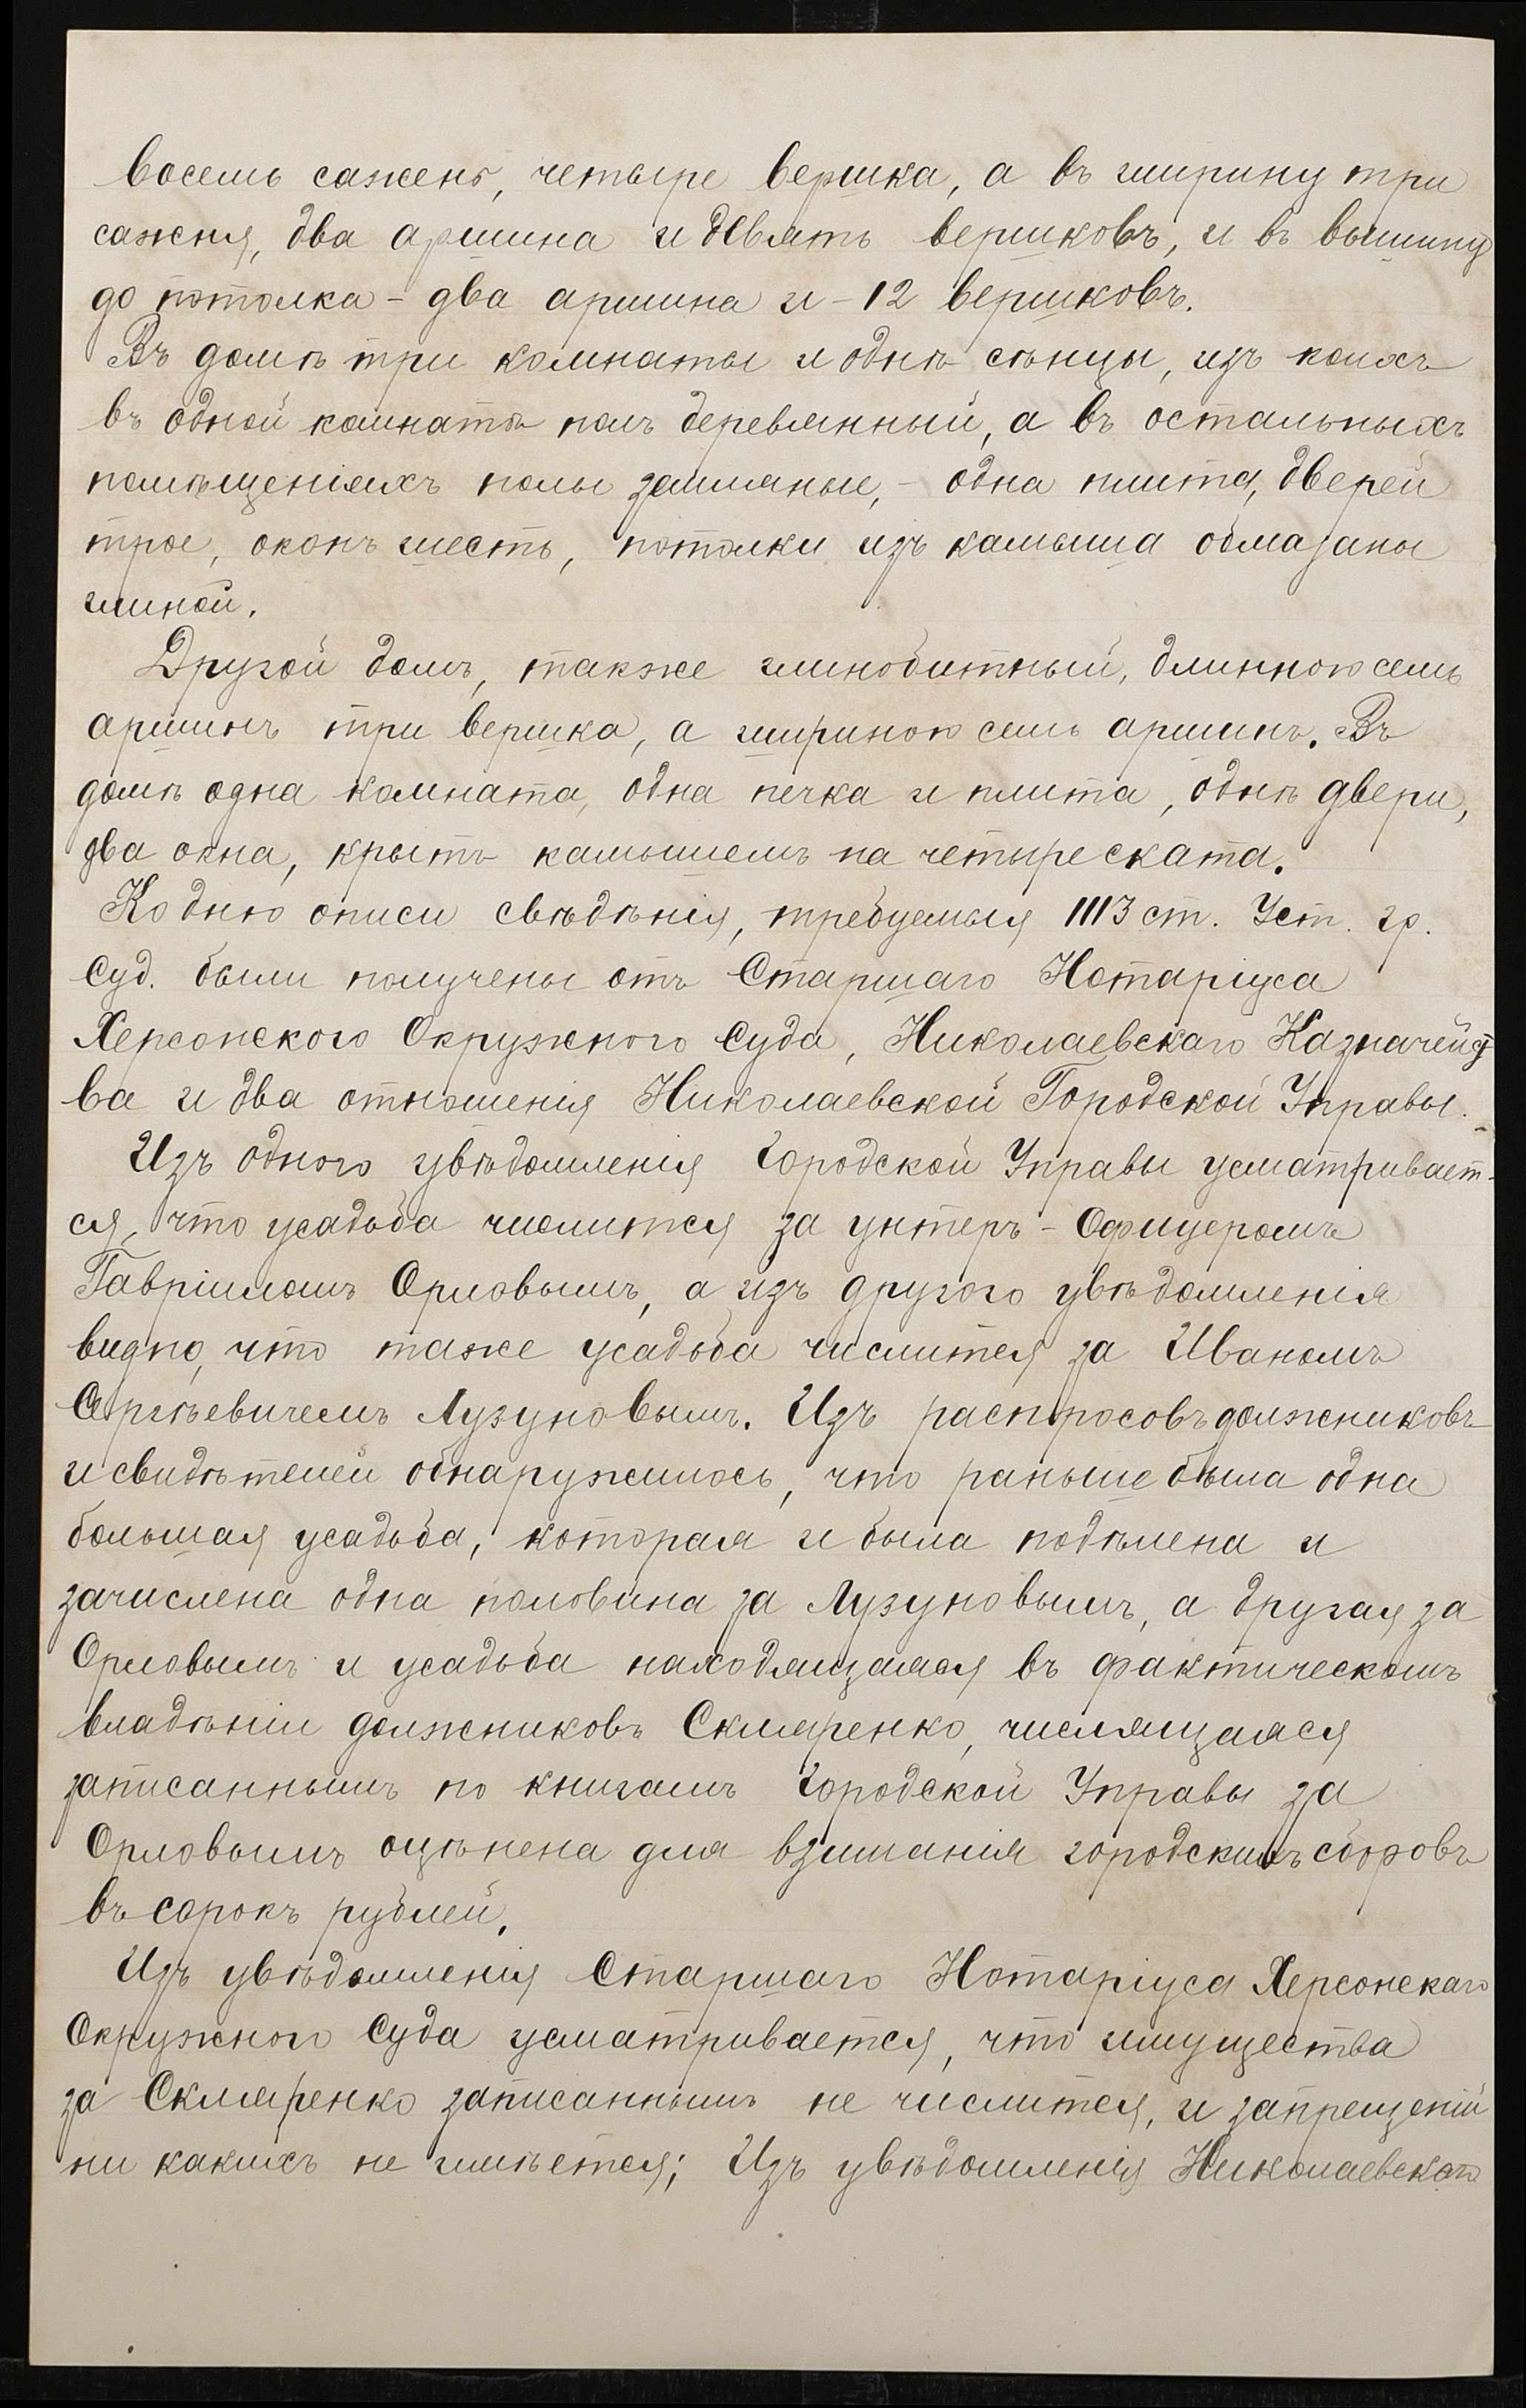 восемь сажень, четыре вершка, а въ ширину три
сажня, два аршина и девять вершковъ, и въ вышину
до потолка - два аршина и - 12 вершковъ.
Въ домѣ три комнаты и однѣ сѣнцы, изъ коихъ
въ одной комнатѣ полъ деревянный, а въ остальныхъ
помѣщеніяхъ полы земляные, - одна плита, дверей
трое, оконъ шесть, потолки изъ камыша обмазаны
глиной.
Другой домъ, также глинобитный, длинною семь
аршинъ три вершка, а шириною семь аршинъ. Въ
домѣ одна комната, одна печка и плита, однѣ двери,
два окна, крытъ камышемъ на четыре ската.
Ко дню описи свѣдѣнія, требуемыя 1113 ст. Уст. гр.
Суд. были получены отъ Старшаго Нотаріуса
Херсонского Окружного Суда, Николаевскаго Казначейст
ва и два отношенія Николаевской Городской Управы.
Изъ одного увѣдомленія Городской Управы усматривает-
ся, что усадьба числится за унтеръ - Офицеромъ
Гавріиломъ Орловымъ, а изъ другого увѣдомленія
видно, что таже усадьба числится за Иваномъ
Сергѣевичемъ Лузуновымъ. Изъ распросовъ должниковъ
и свидѣтелей обнаружилось, что раньше была одна
большая усадьба, которая и была подѣлена и
зачислена одна половина за Лузуновымъ, а другая за
Орловымъ и усадьба находящаяся въ фактическомъ
владѣніи должниковъ Скляренко, числящаяся
записаннымъ по книгамъ Городской Управы за
Орловымъ оцѣнена для взиманія городскихъ сборовъ
въ сорокъ рублей.
Изъ увѣдомленія Старшаго Нотаріуса Херсонскаго
Окружного Суда усматривается, что имущества
за Скляренко записаннымъ не числится, и запрещеній
ни какихъ не имѣется; Изъ увѣдомленія Николаевскаго